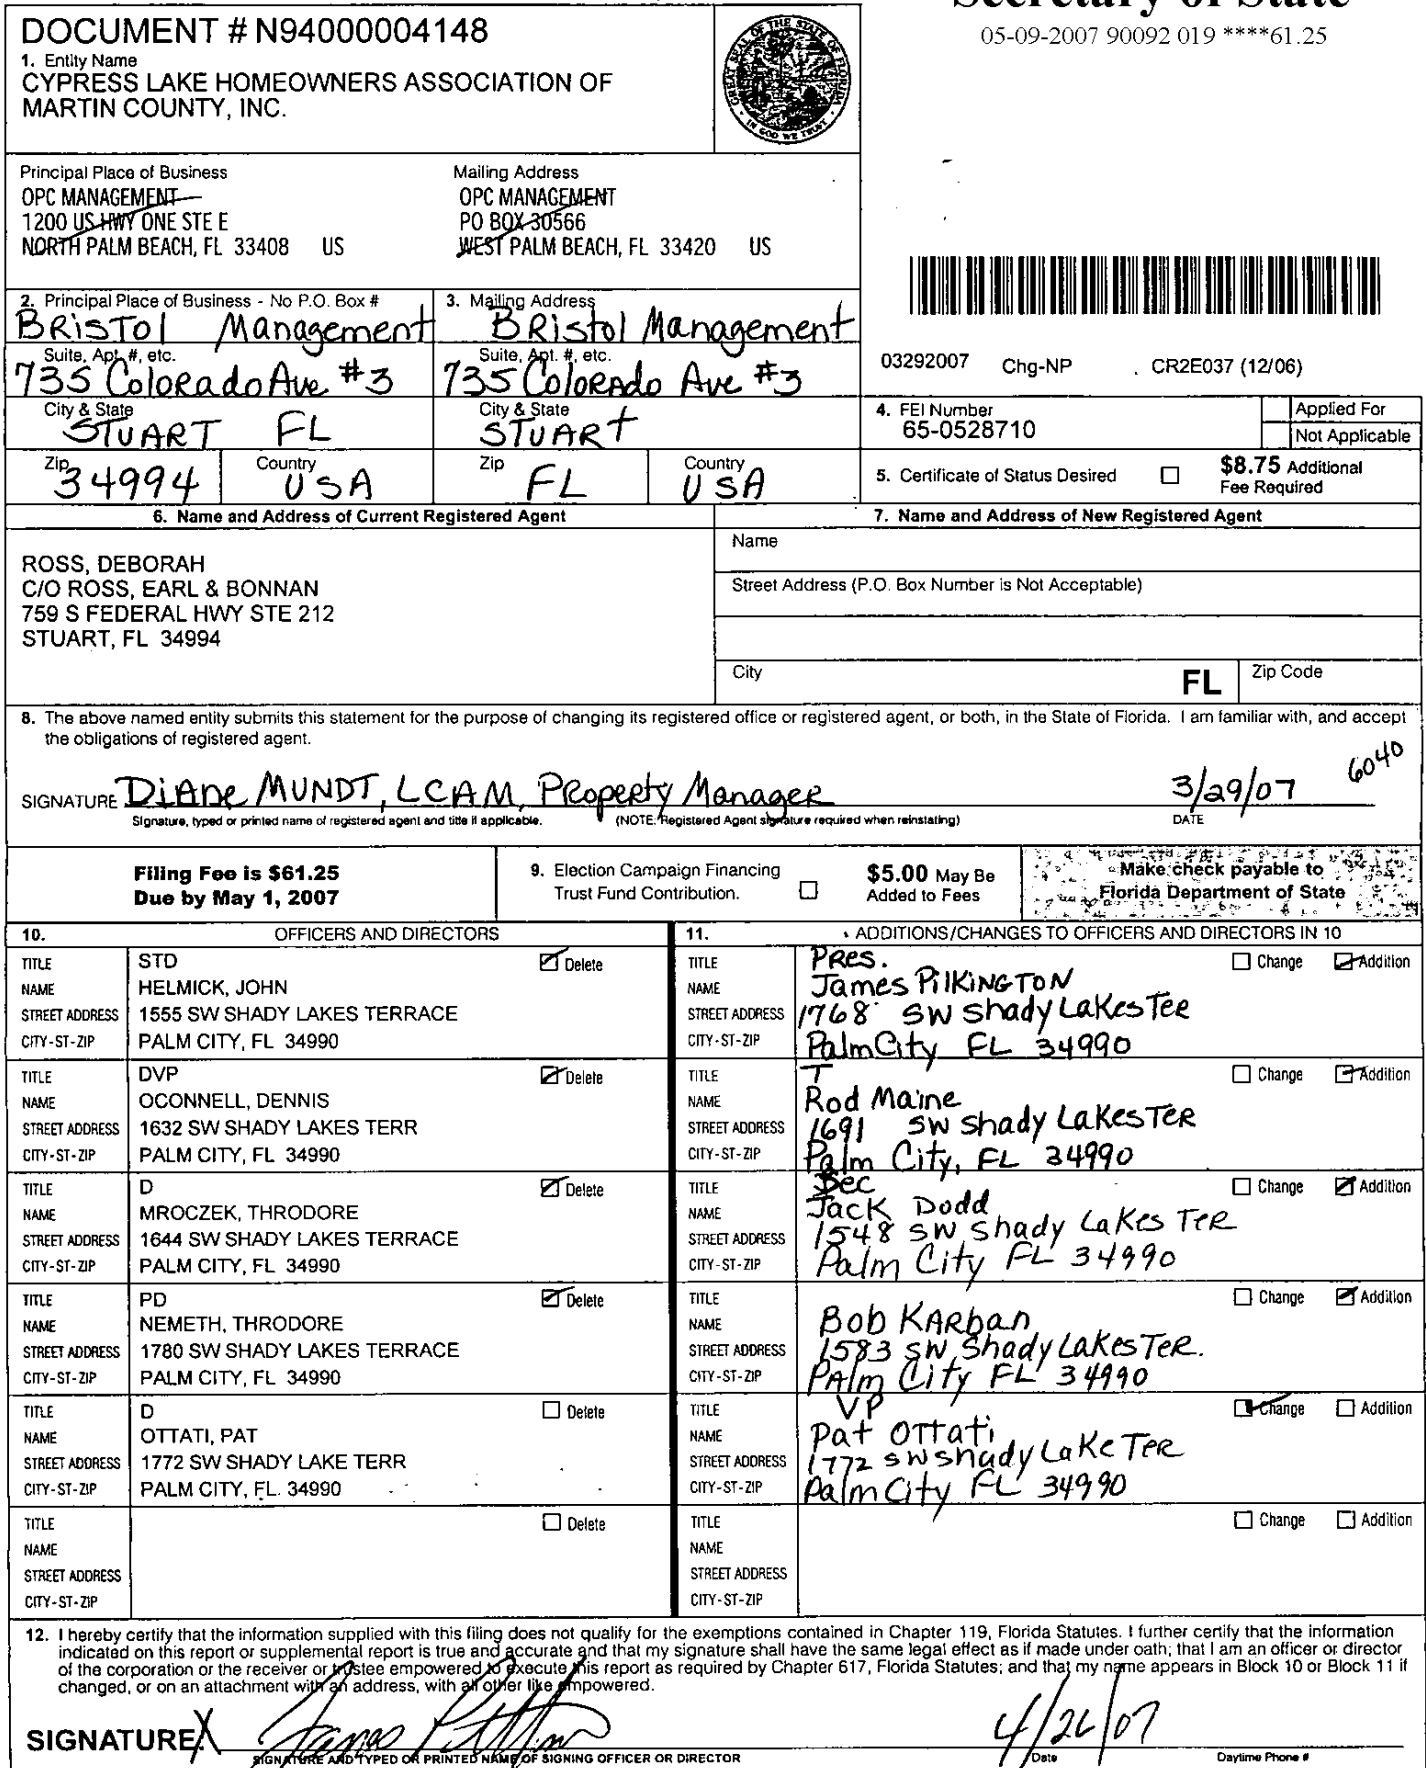 Secretary of State
05-09-2007 90092 019 ****61.25
DOCUMENT # N94000004148
1. Entity Name
CYPRESS LAKE HOMEOWNERS ASSOCIATION OF
MARTIN COUNTY, INC.
GREAT SEAL OF THE STATE OF FLORIDA
IN GOD WE TRUST
Principal Place of Business
OPC MANAGEMENT
1200 US HWY ONE STE E
NORTH PALM BEACH, FL 33408 US
Mailing Address
OPC MANAGEMENT
PO BOX 30566
WEST PALM BEACH, FL 33420 US
2. Principal Place of Business - No P.O. Box #
BRiSTOL Management
Suite, Apt. #, etc.
735 Colorado Ave #3
City & State
STUART FL
Zip
34994
Country
USA
3. Mailing Address
BRistol Management
Suite, Apt. #, etc.
735 Colorado Ave #3
City & State
STUART
Zip
FL
Country
USA
03292007 Chg-NP CR2E037 (12/06)
4. FEI Number
65-0528710
Applied For
Not Applicable
5. Certificate of Status Desired
$8.75 Additional
Fee Required
6. Name and Address of Current Registered Agent
ROSS, DEBORAH
C/O ROSS, EARL & BONNAN
759 S FEDERAL HWY STE 212
STUART, FL 34994
7. Name and Address of New Registered Agent
Name
Street Address (P.O. Box Number is Not Acceptable)
City
FL
Zip Code
8. The above named entity submits this statement for the purpose of changing its registered office or registered agent, or both, in the State of Florida. I am familiar with, and accept
the obligations of registered agent.
SIGNATURE DiANe MUNDT, LCAM, Property Manager
3/29/07
6040
Signature, typed or printed name of registered agent and title if applicable. (NOTE: Registered Agent signature required when reinstating)
DATE
Filing Fee is $61.25
Due by May 1, 2007
9. Election Campaign Financing
Trust Fund Contribution.
$5.00 May Be
Added to Fees
Make check payable to
Florida Department of State
10. OFFICERS AND DIRECTORS
TITLE STD Delete
NAME HELMICK, JOHN
STREET ADDRESS 1555 SW SHADY LAKES TERRACE
CITY-ST-ZIP PALM CITY, FL 34990
TITLE DVP Delete
NAME OCONNELL, DENNIS
STREET ADDRESS 1632 SW SHADY LAKES TERR
CITY-ST-ZIP PALM CITY, FL 34990
TITLE D Delete
NAME MROCZEK, THRODORE
STREET ADDRESS 1644 SW SHADY LAKES TERRACE
CITY-ST-ZIP PALM CITY, FL 34990
TITLE PD Delete
NAME NEMETH, THRODORE
STREET ADDRESS 1780 SW SHADY LAKES TERRACE
CITY-ST-ZIP PALM CITY, FL 34990
TITLE D Delete
NAME OTTATI, PAT
STREET ADDRESS 1772 SW SHADY LAKE TERR
CITY-ST-ZIP PALM CITY, FL 34990
TITLE Delete
NAME
STREET ADDRESS
CITY-ST-ZIP
11. ADDITIONS/CHANGES TO OFFICERS AND DIRECTORS IN 10
TITLE PRes. Change Addition
NAME James PiLKINGTON
STREET ADDRESS 1768 SW Shady Lakes Ter
CITY-ST-ZIP Palm City FL 34990
TITLE T Change Addition
NAME Rod Maine
STREET ADDRESS 1691 SW Shady Lakes Ter
CITY-ST-ZIP Palm City, FL 34990
TITLE Sec Change Addition
NAME Jack Dodd
STREET ADDRESS 1548 SW Shady Lakes Ter
CITY-ST-ZIP Palm City FL 34990
TITLE Change Addition
NAME Bob KARban
STREET ADDRESS 1583 SW Shady Lakes Ter.
CITY-ST-ZIP Palm City FL 34990
TITLE VP Change Addition
NAME Pat OTTATi
STREET ADDRESS 1772 SW Shady Lake Ter
CITY-ST-ZIP Palm City FL 34990
TITLE Change Addition
NAME
STREET ADDRESS
CITY-ST-ZIP
12. I hereby certify that the information supplied with this filing does not qualify for the exemptions contained in Chapter 119, Florida Statutes. I further certify that the information
indicated on this report or supplemental report is true and accurate and that my signature shall have the same legal effect as if made under oath; that I am an officer or director
of the corporation or the receiver or trustee empowered to execute this report as required by Chapter 617, Florida Statutes; and that my name appears in Block 10 or Block 11 if
changed, or on an attachment with an address, with all other like empowered.
SIGNATURE: X James Pilkington 4/26/07
SIGNATURE AND TYPED OR PRINTED NAME OF SIGNING OFFICER OR DIRECTOR Date Daytime Phone #